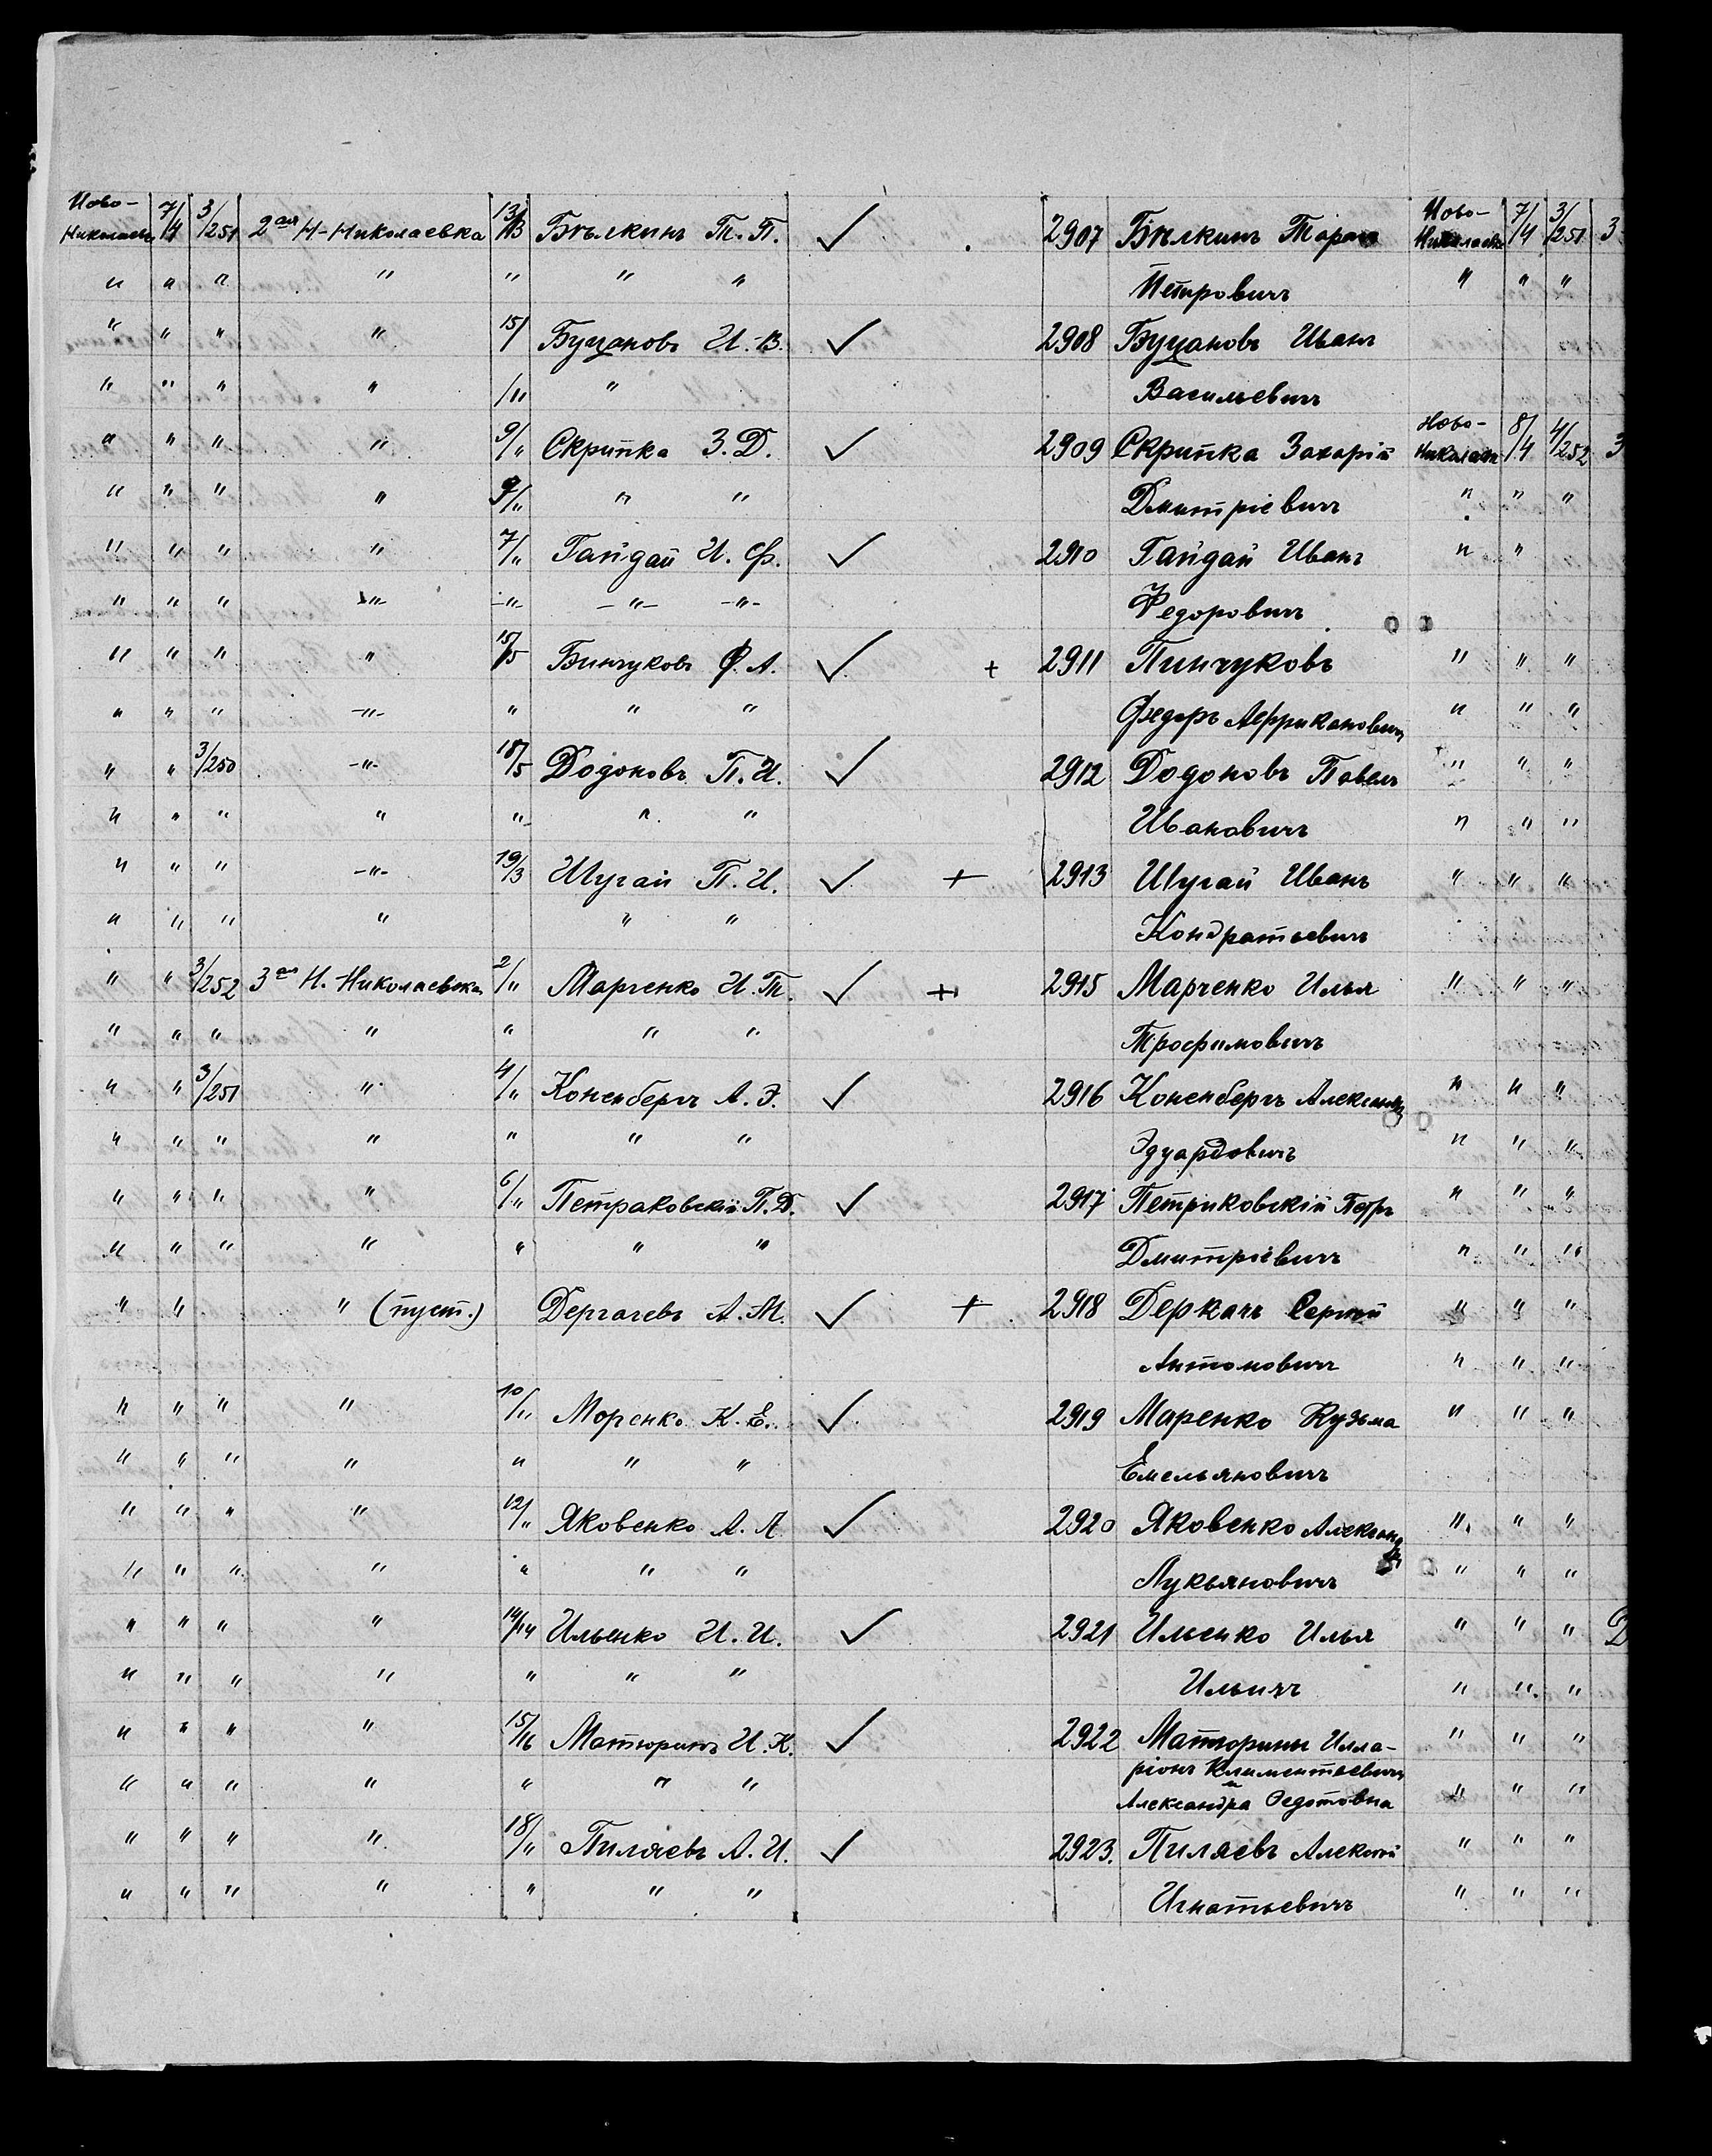 Ново-Николаевк 7/4 3/251 2ая Н-Николаевка 13/13 Бѣлкинъ Т. П. ✓ 2907 Бѣлкинъ Тарас Ново-Николаевк 7/4 3/251 3
" " " " " " " Петровичъ " " "
" " " " 15/ Буцановъ И. В. ✓ 2908 Буцановъ Иванъ
" " " " /" " Васильевичъ
" " " " 9/" Скрипка З. Д. ✓ 2909 Скрипка Захарій Ново-Николаевк 8/4 4/252 3
" " " " 9/" " " Дмитріевичъ " " "
" " " " 7/" Гайдай И. Ф. ✓ 2910 Гайдай Иванъ " "
" " " -"- -"- -"- -"- Федоровичъ
" " " " 15/5 Бинчуковъ Ф. А. ✓ + 2911 Пинчуковъ " " "
" " " -"- " " " Федоръ Аффрикановичъ " " "
" " 3/250 -"- 18/5 Додоновъ П. И. ✓ 2912 Додоновъ Павелъ " " "
" " " " " " " Ивановичъ " " "
" " " -"- 19/3 Шугай П. И. ✓ + 2913 Шугай Иванъ " " "
" " " " " " Кондратьевичъ
" " 3/252 3ая Н. Николаевка 2/" Марченко И. Т. ✓ + 2915 Марченко Илья " " "
" " " " " " " Трофимовичъ
" " 3/251 " 4/" Коненбергъ А. Э. ✓ 2916 Коненбергъ Александръ " " "
" " " " " " " Эдуардовичъ " " "
" " " " 6/" Петраковскій П. Д. ✓ 2917 Петриковскій Петръ " " "
" " " " " " " Дмитріевичъ " " "
" " " (пуст.) Дергачевъ А. М. ✓ + 2918 Деркачъ Сергѣй " " "
Антоновичъ " " "
" " " " 10/" Моренко К. Е. ✓ 2919 Маренко Кузьма " " "
" " " " " " " Емельяновичъ
" " " " 12/" Яковенко А. Л. ✓ 2920 Яковенко Александръ " " "
" " " " " " " Лукьяновичъ " " "
" " " " 14/14 Ильенко И. И. ✓ 2921 Ильенко Илья " " "
" " " " " " " Ильичъ " " "
" " " " 15/16 Матюринъ И. К. ✓ 2922 Матюрины Илла- " " "
" " " " " " " ріонъ Климентьевичъ
и Александра Федотовна " " "
" " " " 18/" Пиляевъ А. И. ✓ 2923. Пиляевъ Алексѣй " " "
" " " " " " " Игнатьевичъ " " "